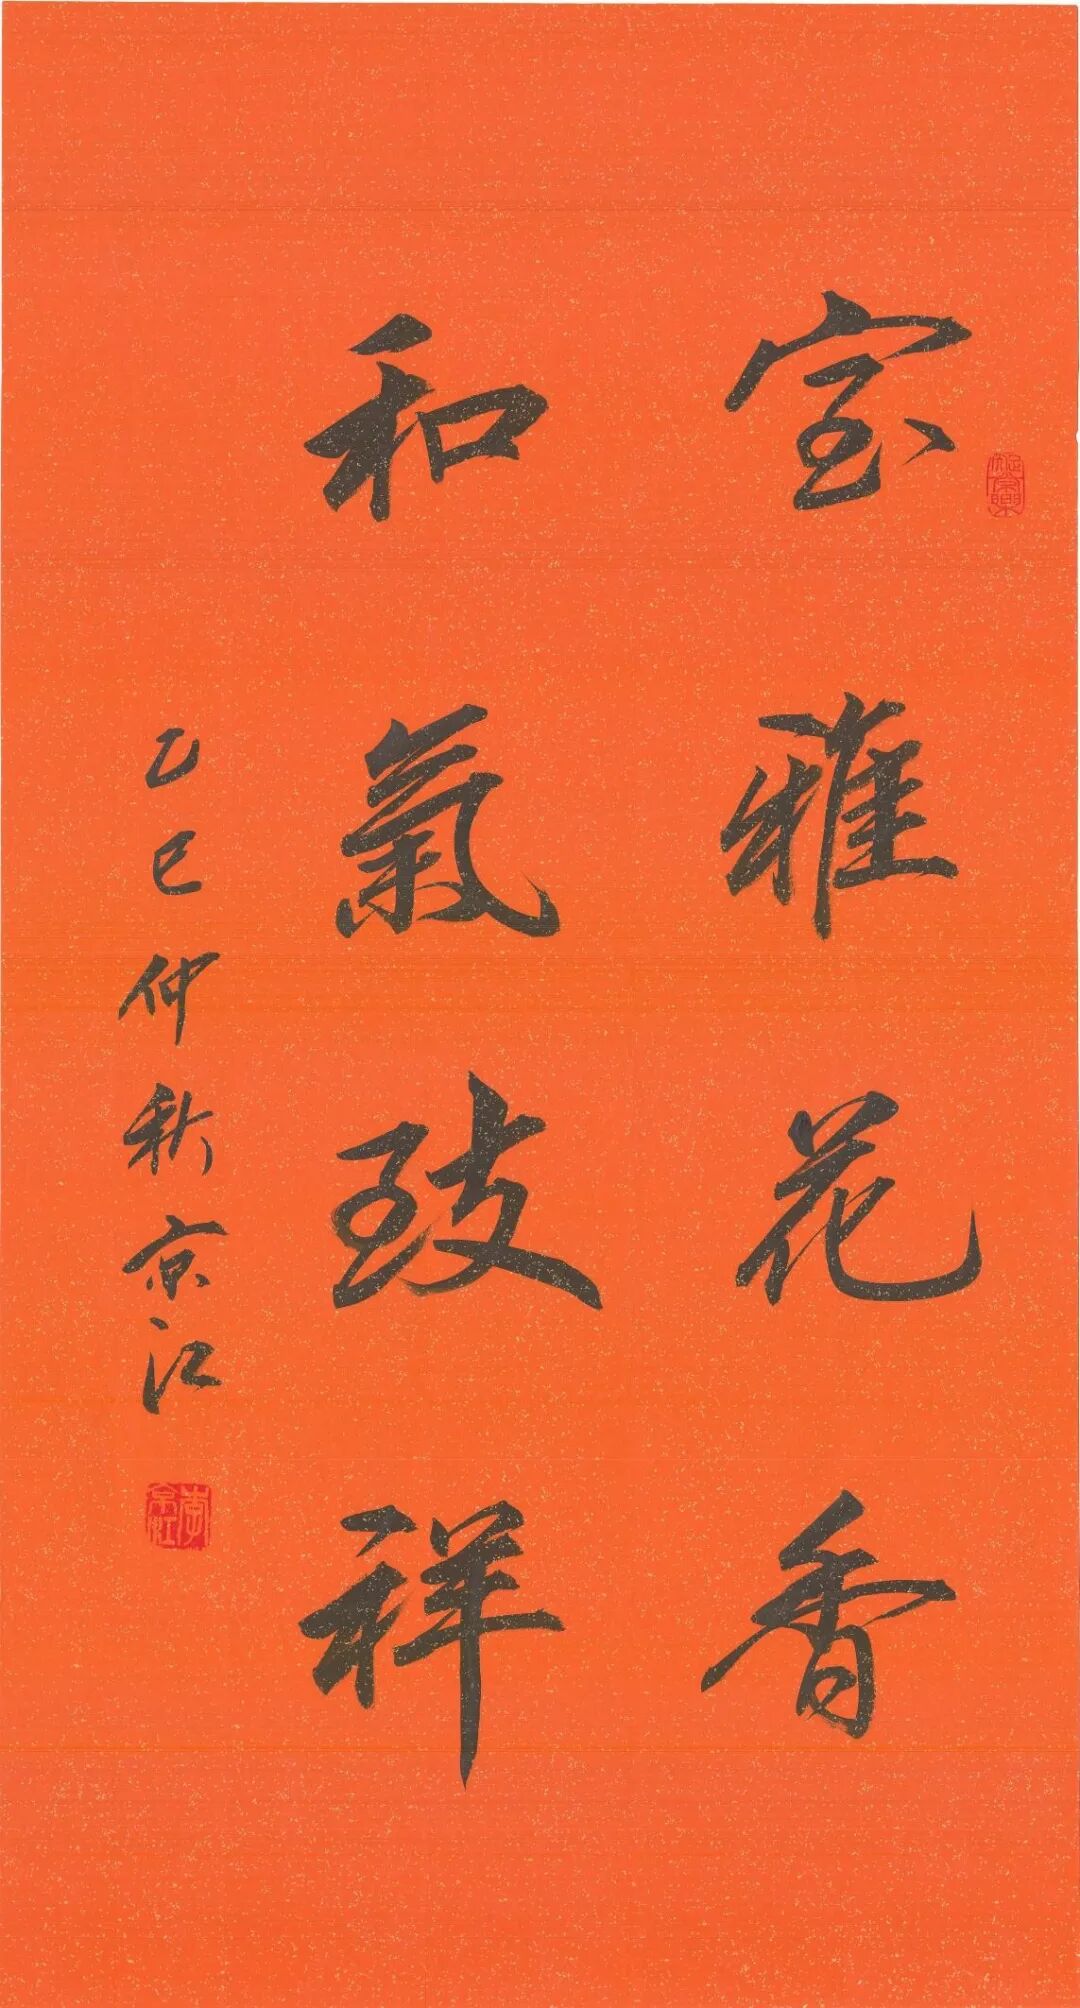 室雅花香
和氣致祥
乙巳仲秋京江
李京江